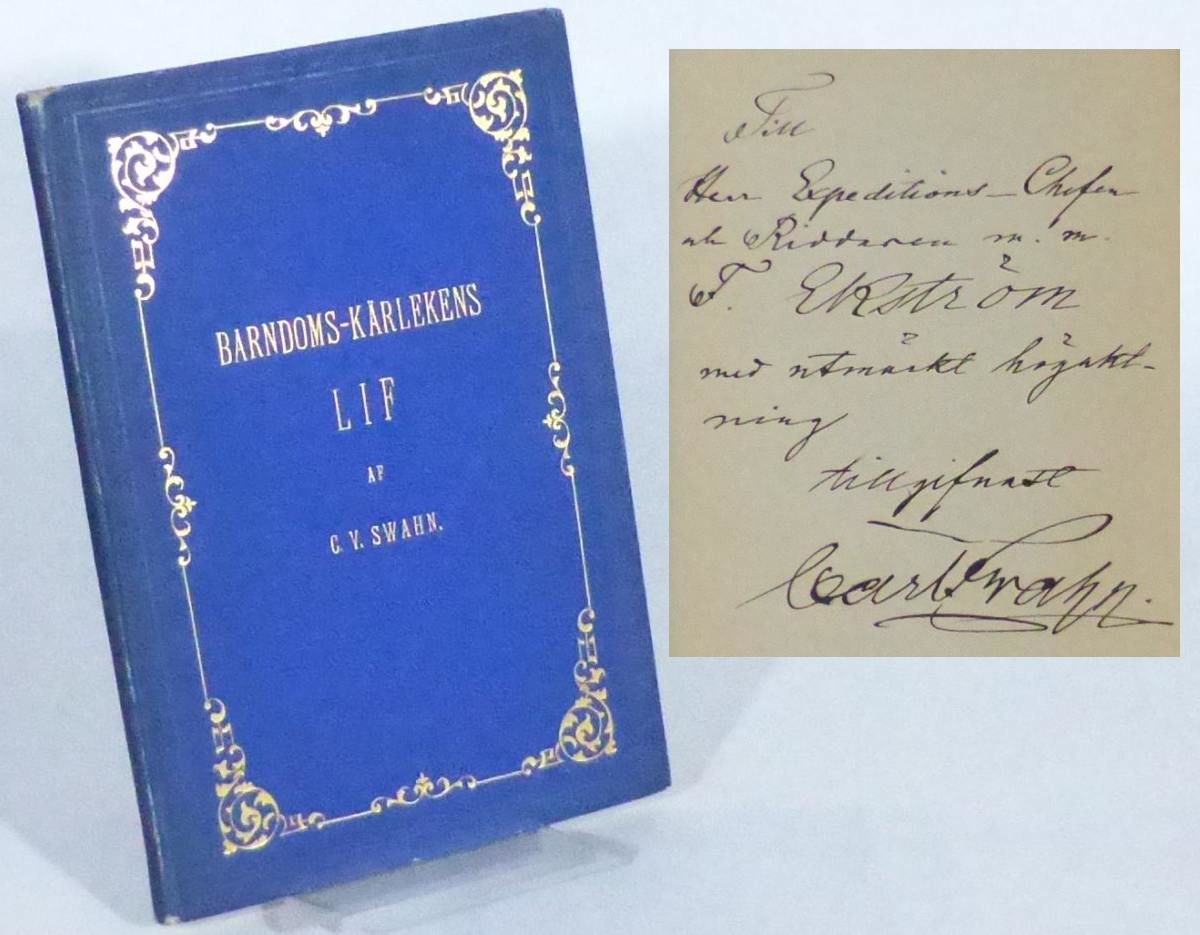 BARNDOMS-KÄRLEKENS
LIF
AF
C. V. SWAHN.
Till
Herr Expeditions-Chefen
och Riddaren m. m.
F. Ekström
med utmärkt högakt-
ning
tillgifnast
Carl Swahn.